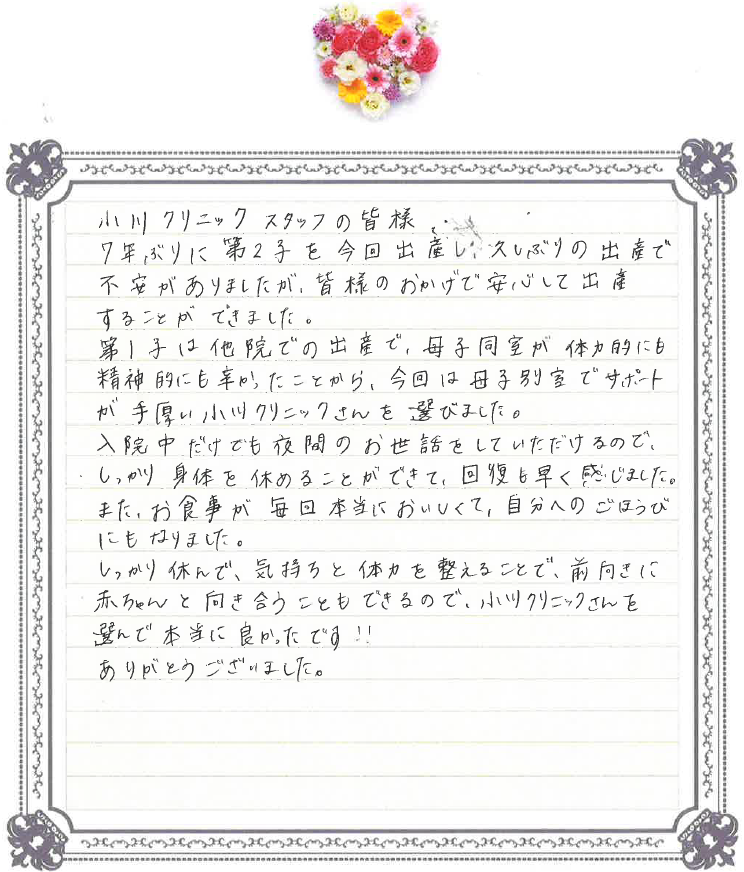 小川クリニック スタッフの皆様
7年ぶりに第2子を今回出産し、久しぶりの出産で
不安がありましたが、皆様のおかげで安心して出産
することができました。
第1子は他院での出産で、母子同室が体力的にも
精神的にも辛かったことから、今回は母子別室でサポート
が手厚い小川クリニックさんを選びました。
入院中だけでも夜間のお世話をしていただけるので、
しっかり身体を休めることができて、回復も早く感じました。
また、お食事が毎回本当においしくて、自分へのごほうび
にもなりました。
しっかり休んで、気持ちと体力を整えることで、前向きに
赤ちゃんと向き合うこともできるので、小川クリニックさんを
選んで本当に良かったです!!
ありがとうございました。